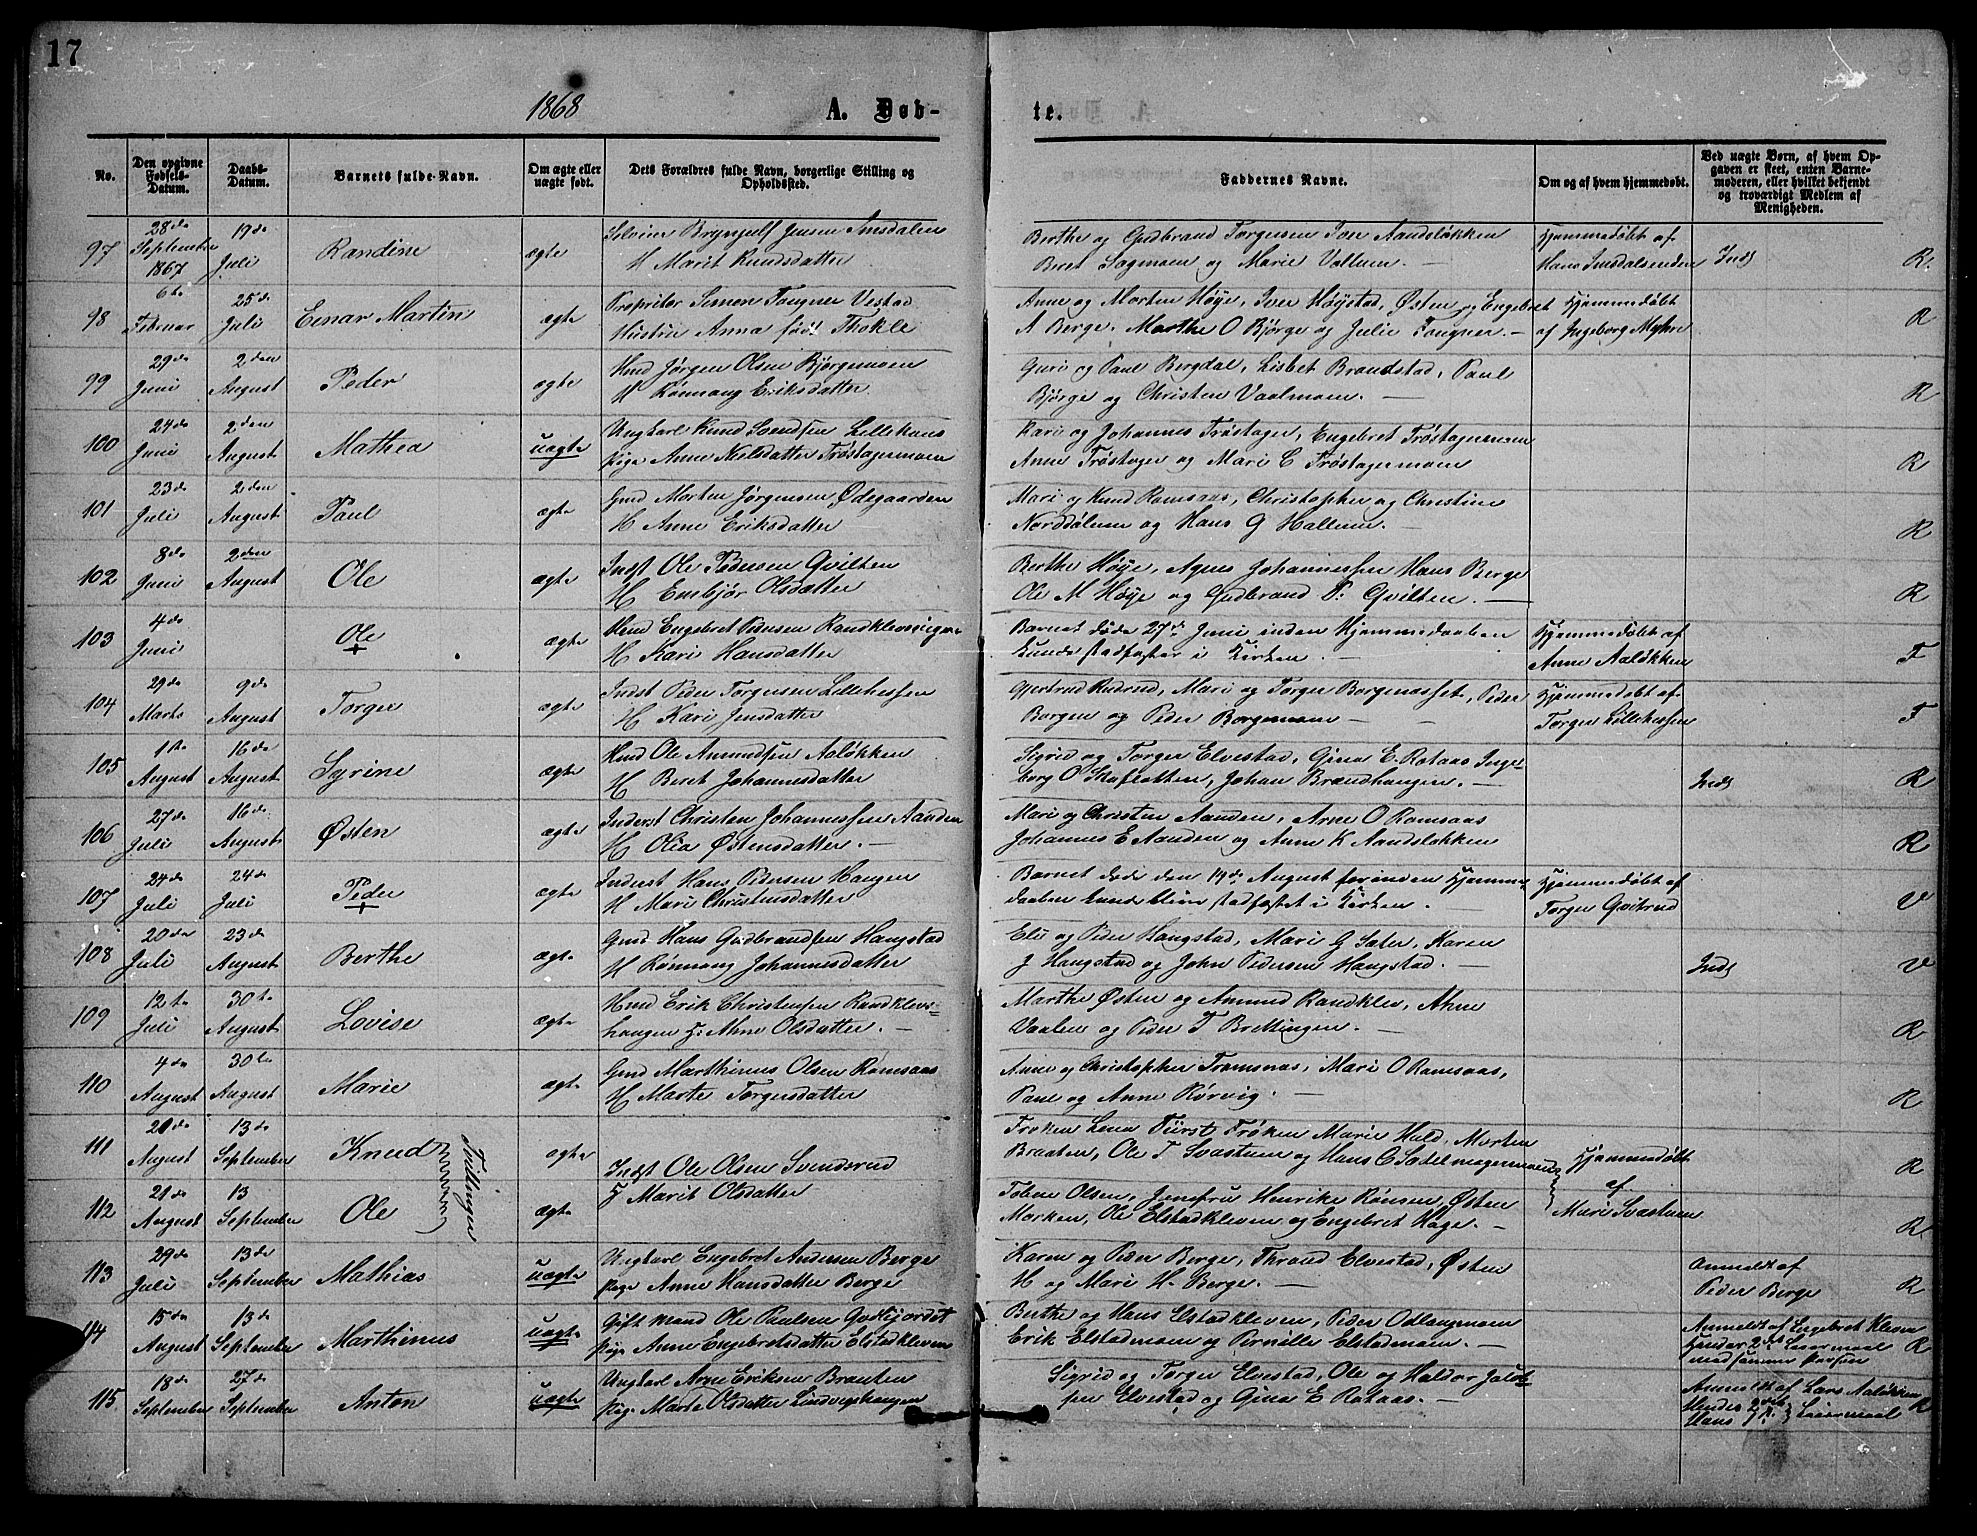 17
1868 A. Døb- te.
No. | Den opgivne Fødsels-Datum. | Daabs-Datum. | Barnets fulde Navn. | Om ægte eller uægte født. | Dets Forældres fulde Navn, borgerlige Stilling og Opholdssted. | Faddernes Navne. | Om og af hvem hjemmedøbt. | Ved uægte Børn, af hvem Opgaven er skeet, enten Barnemoderen, eller hvilket bekjendt og troværdigt Medlem af Menigheden.
97 28de September 1867 19de Juli Randine ægte Selveier Brynjulf Jensen Imsdalen
H Marit Knudsdatter
Berthe og Gudbrand Torgersen Aandsløkken
Beret Sagmoen og Marie Vollum. —
Hjemmedøbt af
Hans Imsdalsenden Inds R.
98 6te Februar 25de Juli Einar Martin ægte Propritær Simen Fougner Vestad
Hustru Anna født Thokle
Anne og Morten Høye, Iver Høystad, Østen og Engebret
A Berge. Marthe O Bjørge og Julie Fougner. —
Hjemmedøbt
af Ingeborg Myhre R
99 29de Juni 2den August Peder ægte Hmd Jørgen Olsen Bjørgemoen
H Rønnaug Eriksdatter.
Guri og Paul Bergdal, Lisbet Brandstad, Paul
Bjørge og Christen Vaalmoen. — R
100 24de Juni 2den August Mathea uægte Ungkarl Knud Svendsen Lillehaas
Pige Anne Nilsdatter Trøstagermoen
Kari og Johannes Trøstager, Engebret Trøstagermoen
Anne Trøstager og Mari C Trøstagermoen R
101 23de Juli 2den August Paul ægte Gmd Morten Jørgensen Ødegaarden
H Anne Eriksdatter
Mari og Knud Ramsaas, Christopher og Christine
Norddølum og Hans G Hallum. — R
102 8de Juni 2den August Ole ægte Inds Ole Pedersen Qvilten
H Embjør Olsdatter
Berthe Høye, Agnes Johannessen Hans Berge
Ole M Høye og Gudbrand P. Qvilten. — R
103 4de Juni Ole + ægte Hmd Engebret Pedersen Randklevseigen
H Kari Hansdatter
Barnet døde 27de Juni inden Hjemmedaaben
kunde stadfæstes i Kirken. —
Hjemmedøbt af
Anne Aaløkken F
104 29de Marts 9de August Torger ægte Indst Peder Torgersen Lillehessen
H Kari Jensdatter
Gjertrud Rudrud, Mari og Torger Borgenasset, Peder
Borgen og Peder Borgemoen —
Hjemmedøbt af
Torger Lillehessen F
105 1ste August 16de August Syrine ægte Hmd Ole Amundsen Aaløkken
H Beret Johannesdatter
Sigrid og Torger Elvestad, Gina E. Rotaas Inge-
borg O Skafletten, Johan Brandhaugen. — Inds R
106 27de Juli 16de August Østen ægte Inderst Christen Johannessen Aanden
H Olia Østensdatter. —
Mari og Christen Aanden, Arne O Ramsaas
Johannes E Aanden og Anne K Aandsløkken R
107 24de Juli 24de Juli Peder + ægte Inderst Hans Pedersen Haugen
H Mari Christensdatter
Barnet døde den 19de August forinden Hjemme-
daaben kunde blive stadfæstet i Kirken. —
Hjemmedøbt af
Torger Qvitrud V
108 20de Juli 23de August Berthe ægte Gmd Hans Gudbrandsen Haugstad
H Rønnaug Johannesdatter
Eli og Peder Haugstad, Mari G Sæter, Karen
J Haugstad og John Pedersen Haugstad. — Inds V
109 12te Juli 30te August Lovise ægte Hmd Erik Christensen Randklevs-
haugen H: Ahne Olsdatter. —
Marthe Østen og Amund Randklev, Ahne
Vaalen og Peder T Brettingen. — R
110 4de August 30te August Marie ægte Gmd Marthinus Olsen Ramsaas
H Marte Torgersdatter
Anne og Christopher Tromsnæs, Mari O Ramsaas,
Paul og Anne Rørvig. — R
111 21de August 13de September Knud Tvillinger ægte Indst Ole Olsen Svendsrud
H Marit Olsdatter
Frøken Lena Fürst Frøken Marie Huld, Morten
Braaten, Ole T Svastuen og Hans C Sadelmagermoen
Hjemmedøbt
af
Mari Svastuen R
112 21de August 13 September Ole ægte
Tobine Olsen, Jomfru Henrike Rønsen, Østen
Morken, Ole Elstadkleven og Engebret Hage. — R
113 29de Juli 13de September Mathias uægte Ungkarl Engebret Andersen Berge
Pige Anne Hansdatter Berge
Karen og Peder Berge, Thrond Elvestad, Østen
H og Mari H. Berge. —
Anmeldt af
Peder Berge R
114 15de August 13de September Marthinus uægte Gift Mand Ole Paulsen Godlijordet
Pige Anne Engebretsdatter Elstadkleven
Berthe og Hans Elstadkleven, Peder Odlaugmoen
Erik Elstadmoen og Pernille Elstadmoen. —
Anmeldt af Engebret Kleven
Hendes 2det Leiermaal
med samme Person R
115 18de September 27de September Anton uægte Ungkarl Arne Eriksen Braaten
Pige Marte Olsdatter Lindvigshaugen
Sigrid og Torger Elvestad, Ole og Haldor Jakob-
sen Elvestad og Gina E Rotaas. —
Anmeldt af Lars Aaløkken
Hendes 2det
Hans 1ste } Leiermaal R